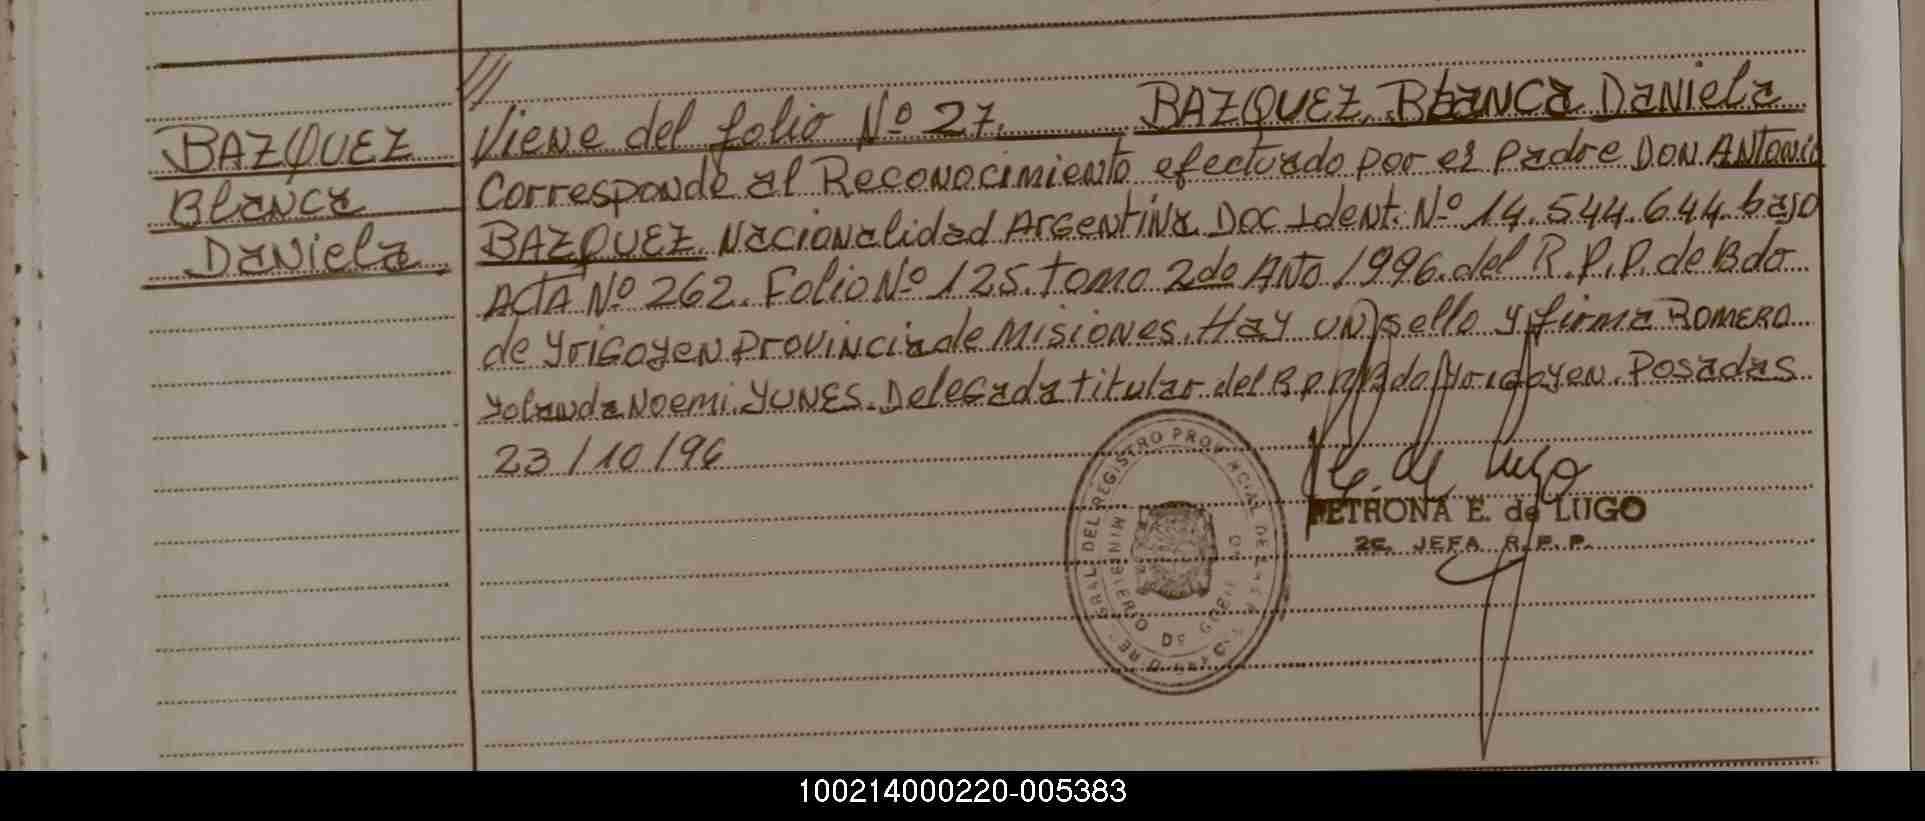 BAZQUEZ
Blanca
Daniela
Viene del folio Nº 27. BAZQUEZ, Blanca Daniela
Corresponde al Reconocimiento efectuado por el padre DON ANTONIO
BAZQUEZ. Nacionalidad Argentina Doc Ident. Nº 14.544.644. bajo
ACTA Nº 262. Folio Nº 125. Tomo 2do Año 1996. del R.P.P. de Bdo
de Yrigoyen provincia de Misiones. Hay un sello y firma ROMERO
Yolanda Noemi. YUNES. Delegada titular del R.P.P. Bdo Yrigoyen. Posadas
23/10/96
E. de Lugo
PETRONA E. de LUGO
2C. JEFA R.P.P.
GRAL DEL REGISTRO PROVINCIAL DE
MINISTERIO DE GOBIERNO
100214000220-005383